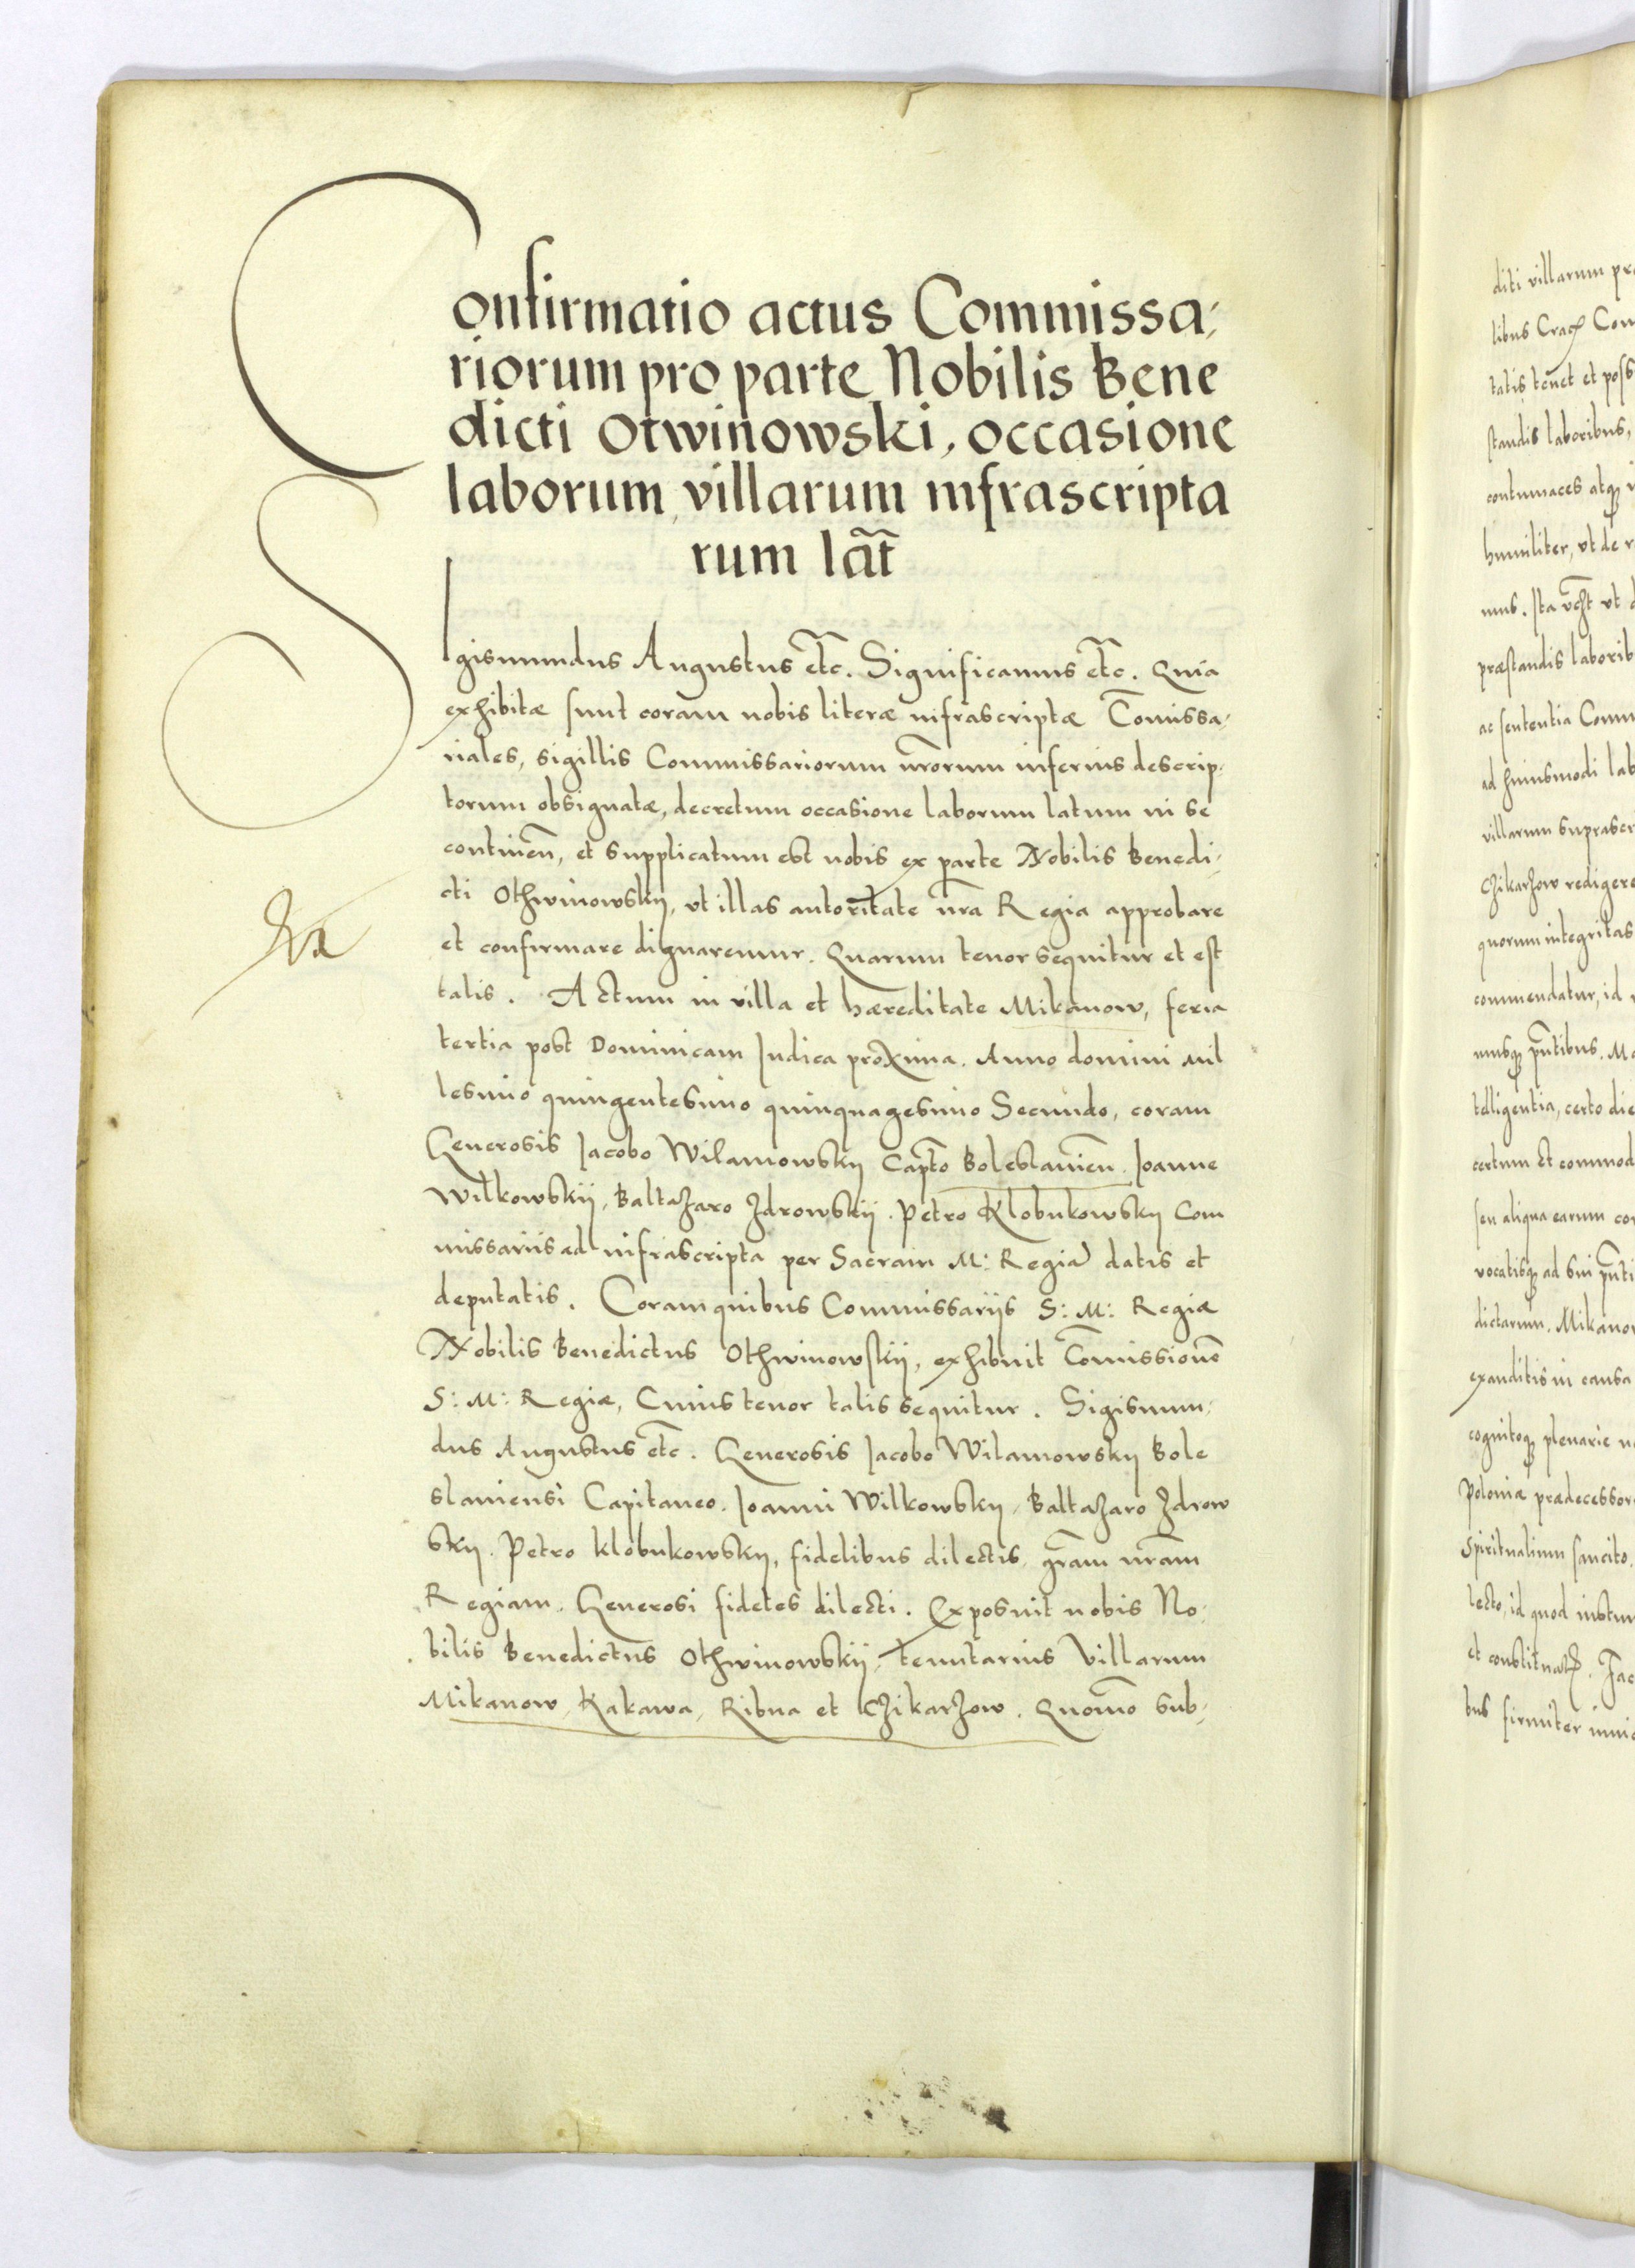 Confirmatio actus Commissa-
riorum pro parte Nobilis Bene
dicti Otwinowski, occasione
laborum villarum infrascripta
rum lãt
Sigismundus Augustus etc. Significamus etc. Quia
exhibitæ sunt coram nobis literæ infrascriptæ Cõmissa-
riales, sigillis Commissariorum nr̃orum inferius descrip-
torum obsignatæ, decretum occasione laborum latum in se
continen̄, et supplicatum est nobis ex parte Nobilis Benedi-
cti Othwinowskij, ut illas autoritate nr̃a Regia approbare
et confirmare dignaremur. Quarum tenor sequitur et est
talis. Actum in villa et hæreditate Mikanow, feria
tertia post Dominicam Iudica proxima. Anno domini mil
lesimo quingentesimo quinquagesimo Secundo, coram
Generosis Iacobo Wilamowskij Capt̃o Boleslavien̄. Ioanne
Wilkowskij, Baltazaro Zdrowskij. Petro Klobukowskij Com
missariis ad infrascripta per Sacram M: Regiã datis et
deputatis. Coram quibus Commissariis S: M: Regiæ
Nobilis Benedictus Othwinowskij, exhibuit Cõmissionẽ
S: M: Regiæ, Cuius tenor talis sequitur. Sigismun-
dus Augustus etc. Generosis Iacobo Wilamowskij Bole
slaviensi Capitaneo. Ioanni Wilkowskij, Baltazaro Zdrow
skij. Petro Klobukowskij, fidelibus dilectis, gr̃am nr̃am
Regiam. Generosi fideles dilecti. Exposuit nobis No-
bilis Benedictus Othwinowskij, tenutarius Villarum
Mikanow, Kakawa, Ribna et Czikarzow. Quomõ sub-
diti villarum
libus Crac̃
tatis tenet et
standis laboribus,
contumaces atq̃
humiliter, ut de
mus. Ita ut
præstandis laborib
ac sententia Comm
ad huiusmodi lab
villarum suprascr
Czikarzow rediger
quorum integritas
commendatur, id
telligentia, certo die
certum et commod
seu aliqua earum
vocatisq̃ ad
dictarum. Mikano
exauditis in causa
cognitoq̃ plenarie
Poloniæ prædecessor
Spiritualium sancito.
lecto, id quod
bus firmiter